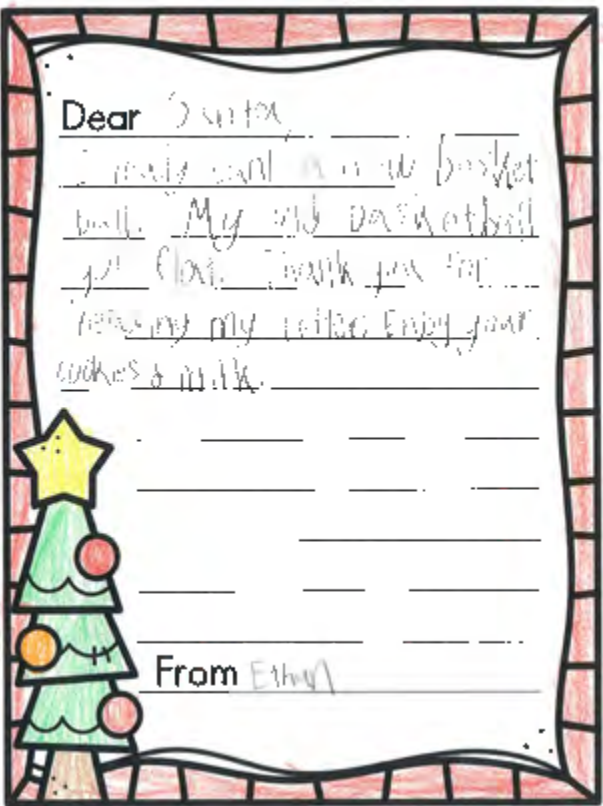 Dear Santa,
I really want a new basket
ball. My old basketball
got flat. Thank you for
reading my letter. Enjoy your
cookies & milk.
From Ethan